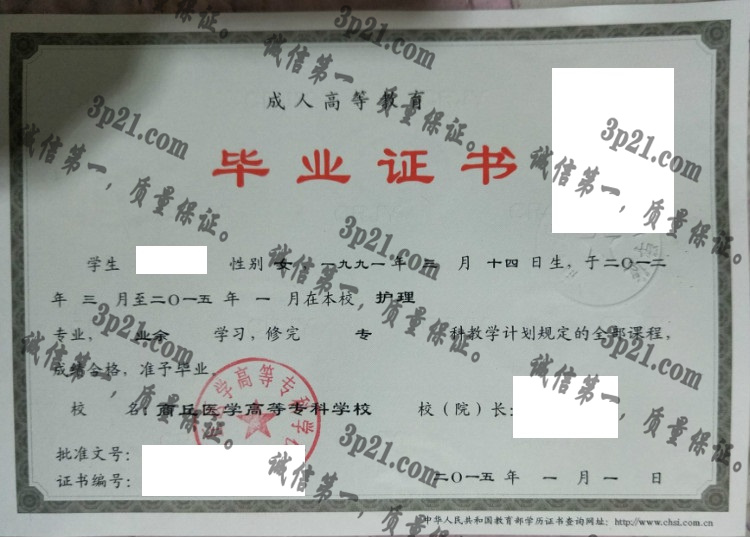 成人高等教育
毕业证书
学生 性别 女,一九九一年 三 月 十四日生,于二〇一二
年 三 月至二〇一五 年 一 月在本校 护理
专业, 业余 学习,修完 专 科教学计划规定的全部课程,
成绩合格,准予毕业。
校 名:商丘医学高等专科学校 校(院)长:
批准文号:
证书编号: 二〇一五 年 一 月 一 日
中华人民共和国教育部学历证书查询网址:http://www.chsi.com.cn
学高等专科学
3p21.com
诚信第一,质量保证。
3p21.com
诚信第一,质量保证。
3p21.com
诚信第一,质量保证。
3p21.com
诚信第一,质量保证。
3p21.com
诚信第一,质量保证。
3p21.com
诚信第一,质量保证。
3p21.com
诚信第一,质量保证。
质量保证。